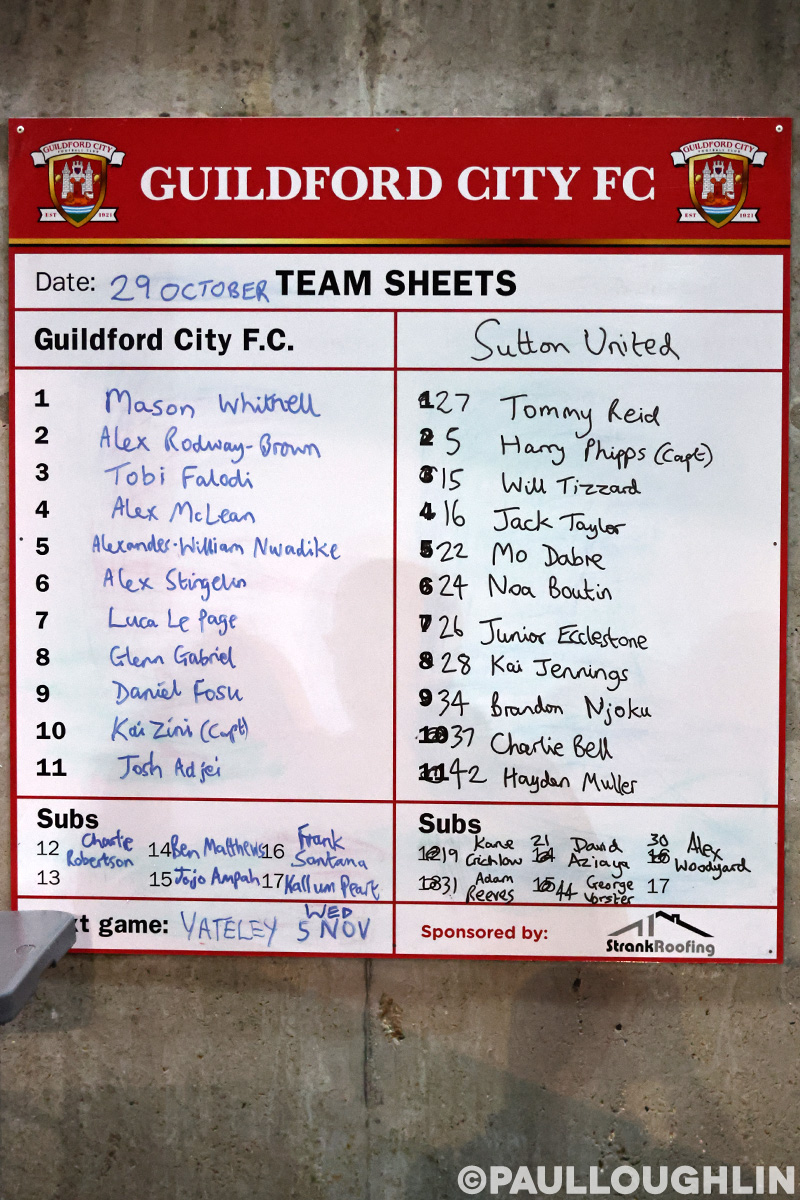 GUILDFORD CITY
FOOTBALL CLUB
EST 1921
GUILDFORD CITY FC
GUILDFORD CITY
FOOTBALL CLUB
EST 1921
Date: 29 OCTOBER TEAM SHEETS
Guildford City F.C.
1 Mason Whitnell
2 Alex Rodway-Brown
3 Tobi Falodi
4 Alex McLean
5 Alexander-William Nwadike
6 Alex Stingelin
7 Luca Le Page
8 Glenn Gabriel
9 Daniel Fosu
10 Kai Zini (Capt)
11 Josh Adjei
Subs
12 Charlie Robertson 14 Ben Matthews 16 Frank Santana
13 15 Jojo Ampah 17 Kallum Peart
xt game: YATELEY WED 5 NOV
Sutton United
1 27 Tommy Reid
2 5 Harry Phipps (Capt)
3 15 Will Tizzard
4 16 Jack Taylor
5 22 Mo Dabre
6 24 Noa Boutin
7 26 Junior Ecclestone
8 28 Kai Jennings
9 34 Brandon Njoku
10 37 Charlie Bell
11 42 Hayden Muller
Subs
12 19 Kane Crichlow 14 21 David Aziaya 16 30 Alex Woodyard
13 31 Adam Reeves 15 44 George Vorster 17
Sponsored by: StrankRoofing
©PAULLOUGHLIN